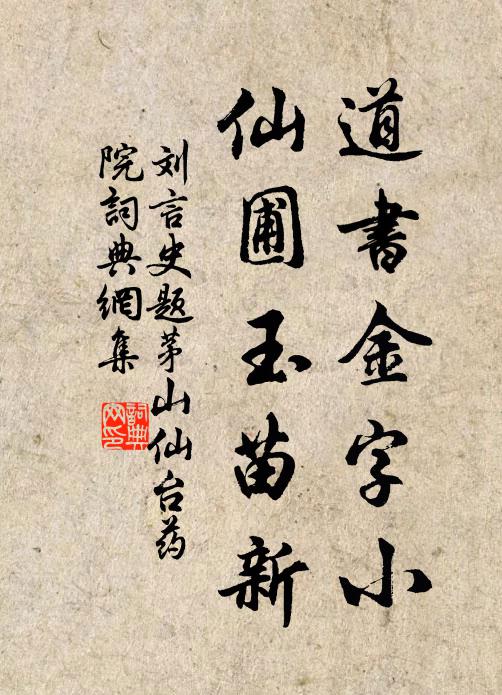 道書金字小
仙圃玉苗新
刘言史题茅山仙台药
院詞典網集
詞典
网印